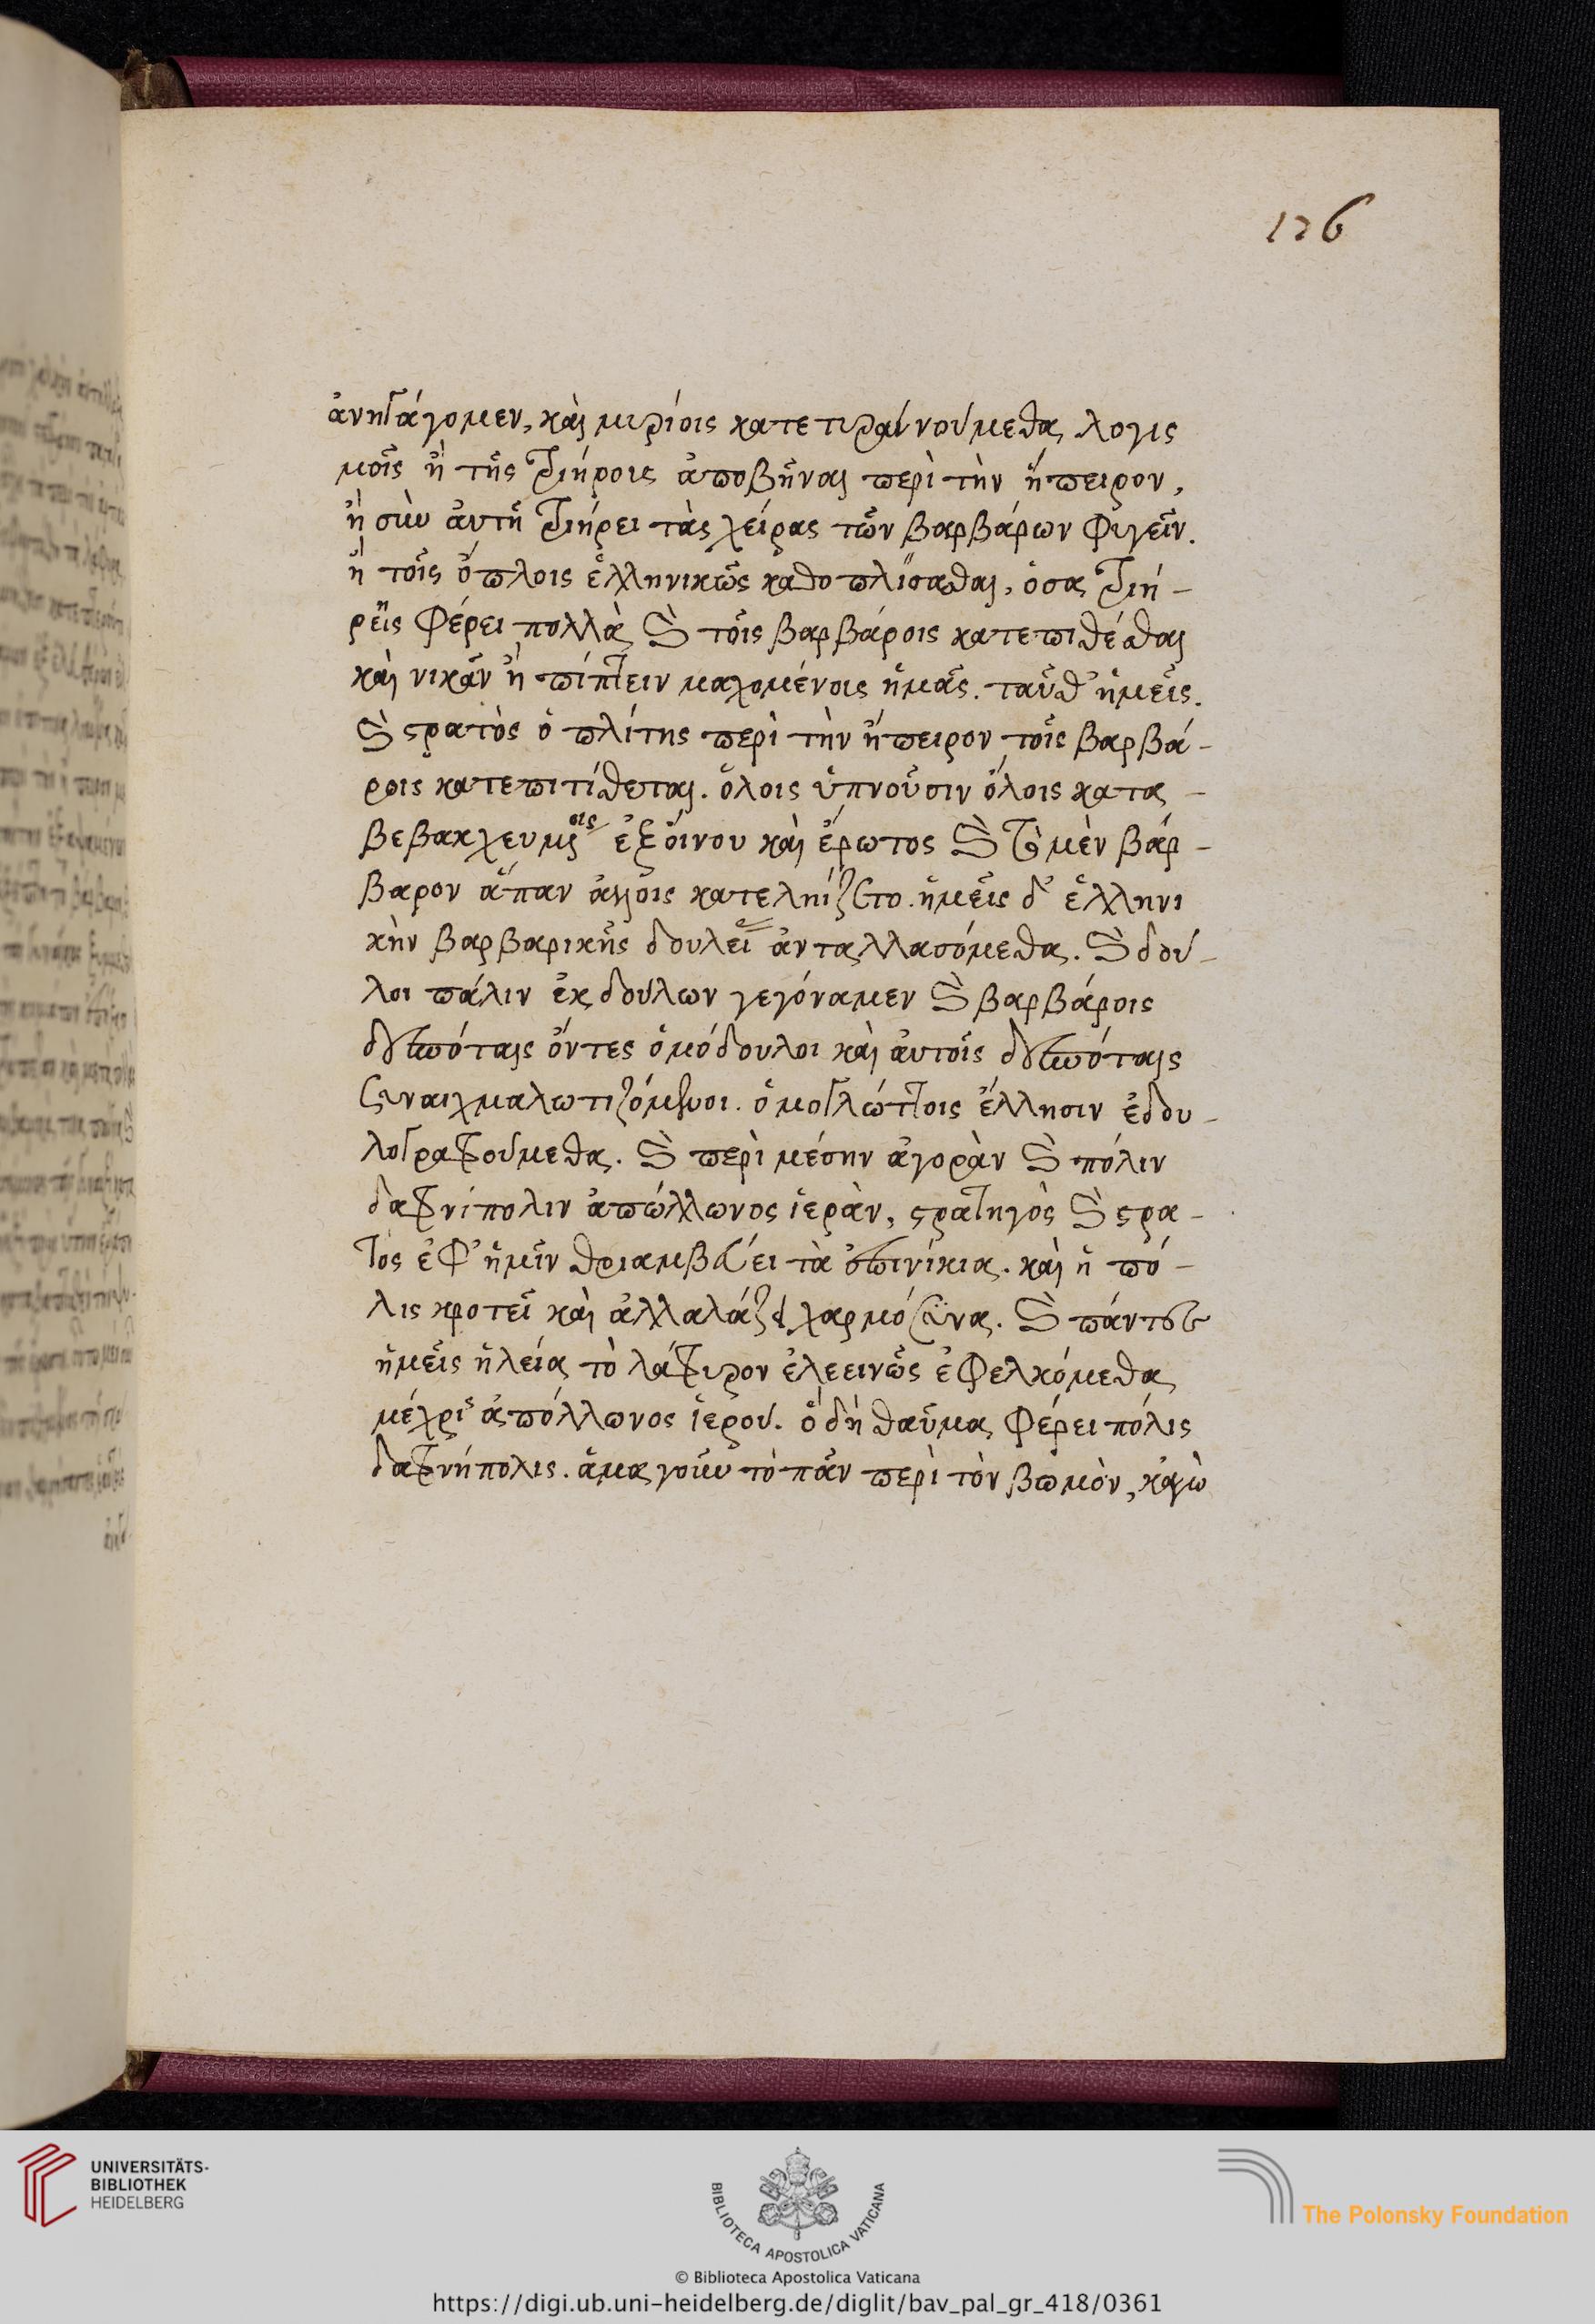 126
ἀνηγάγομεν, καὶ μυρίοις κατετυραννούμεθα λογις
μοῖς ἢ τῆς τριήρους ἀποβῆναι περὶ τὴν ἤπειρον,
ἢ σὺν αὐτῇ τριήρει τὰς χείρας τῶν βαρβάρων φυγεῖν.
ἢ τοῖς ὅπλοις ἑλληνικῶς καθοπλίσασθαι, ὅσα τριή-
ρεις φέρει πολλὰ καὶ τοῖς βαρβάροις κατεπιθέσθαι
καὶ νικᾶν ἢ πίπτειν μαχομένοις ἡμᾶς. ταῦθ' ἡμεῖς.
καὶ στρατὸς ὁπλίτης περὶ τὴν ἤπειρον τοῖς βαρβά-
ροις κατεπιτίθεται. ὅλοις ὑπνοῦσιν ὅλοις κατα-
βεβακχευμένοις ἐξ οἴνου καὶ ἔρωτος καὶ τὸ μὲν βάρ-
βαρον ἅπαν αὐτοῖς κατεληίζετο. ἡμεῖς δ' ἑλληνι
κὴν βαρβαρικῆς δουλείαν ἀνταλλασόμεθα. καὶ δοῦ-
λοι πάλιν ἐκ δούλων γεγόναμεν καὶ βαρβάροις
δεσπόταις ὄντες ὁμόδουλοι καὶ αὐτοῖς δεσπόταις
συναιχμαλωτιζόμενοι. ὁμογλώττοις ἕλλησιν ἐδου-
λογραφούμεθα. καὶ περὶ μέσην ἀγορὰν καὶ πόλιν
δαφνίπολιν ἀπώλλωνος ἱερὰν, στρατηγὸς καὶ στρα-
τὸς ἐφ' ἡμῖν θριαμβεύει τὰ ἐπινίκια. καὶ ἡ πό-
λις κροτεῖ καὶ ἀλλαλάζει χαρμόσυνα. καὶ πάντες
ἡμεῖς ἡ λεία τὸ λάφυρον ἐλεεινῶς ἐφελκόμεθα
μέχρις ἀπόλλωνος ἱεροῦ. ὃ δὴ θαῦμα φέρει πόλις
δαφνήπολις. ἅμα γοῦν τὸ πᾶν περὶ τὸν βωμὸν, κἀγὼ
UNIVERSITÄTS-
BIBLIOTHEK
HEIDELBERG
BIBLIOTECA APOSTOLICA VATICANA
© Biblioteca Apostolica Vaticana
The Polonsky Foundation
https://digi.ub.uni-heidelberg.de/diglit/bav_pal_gr_418/0361